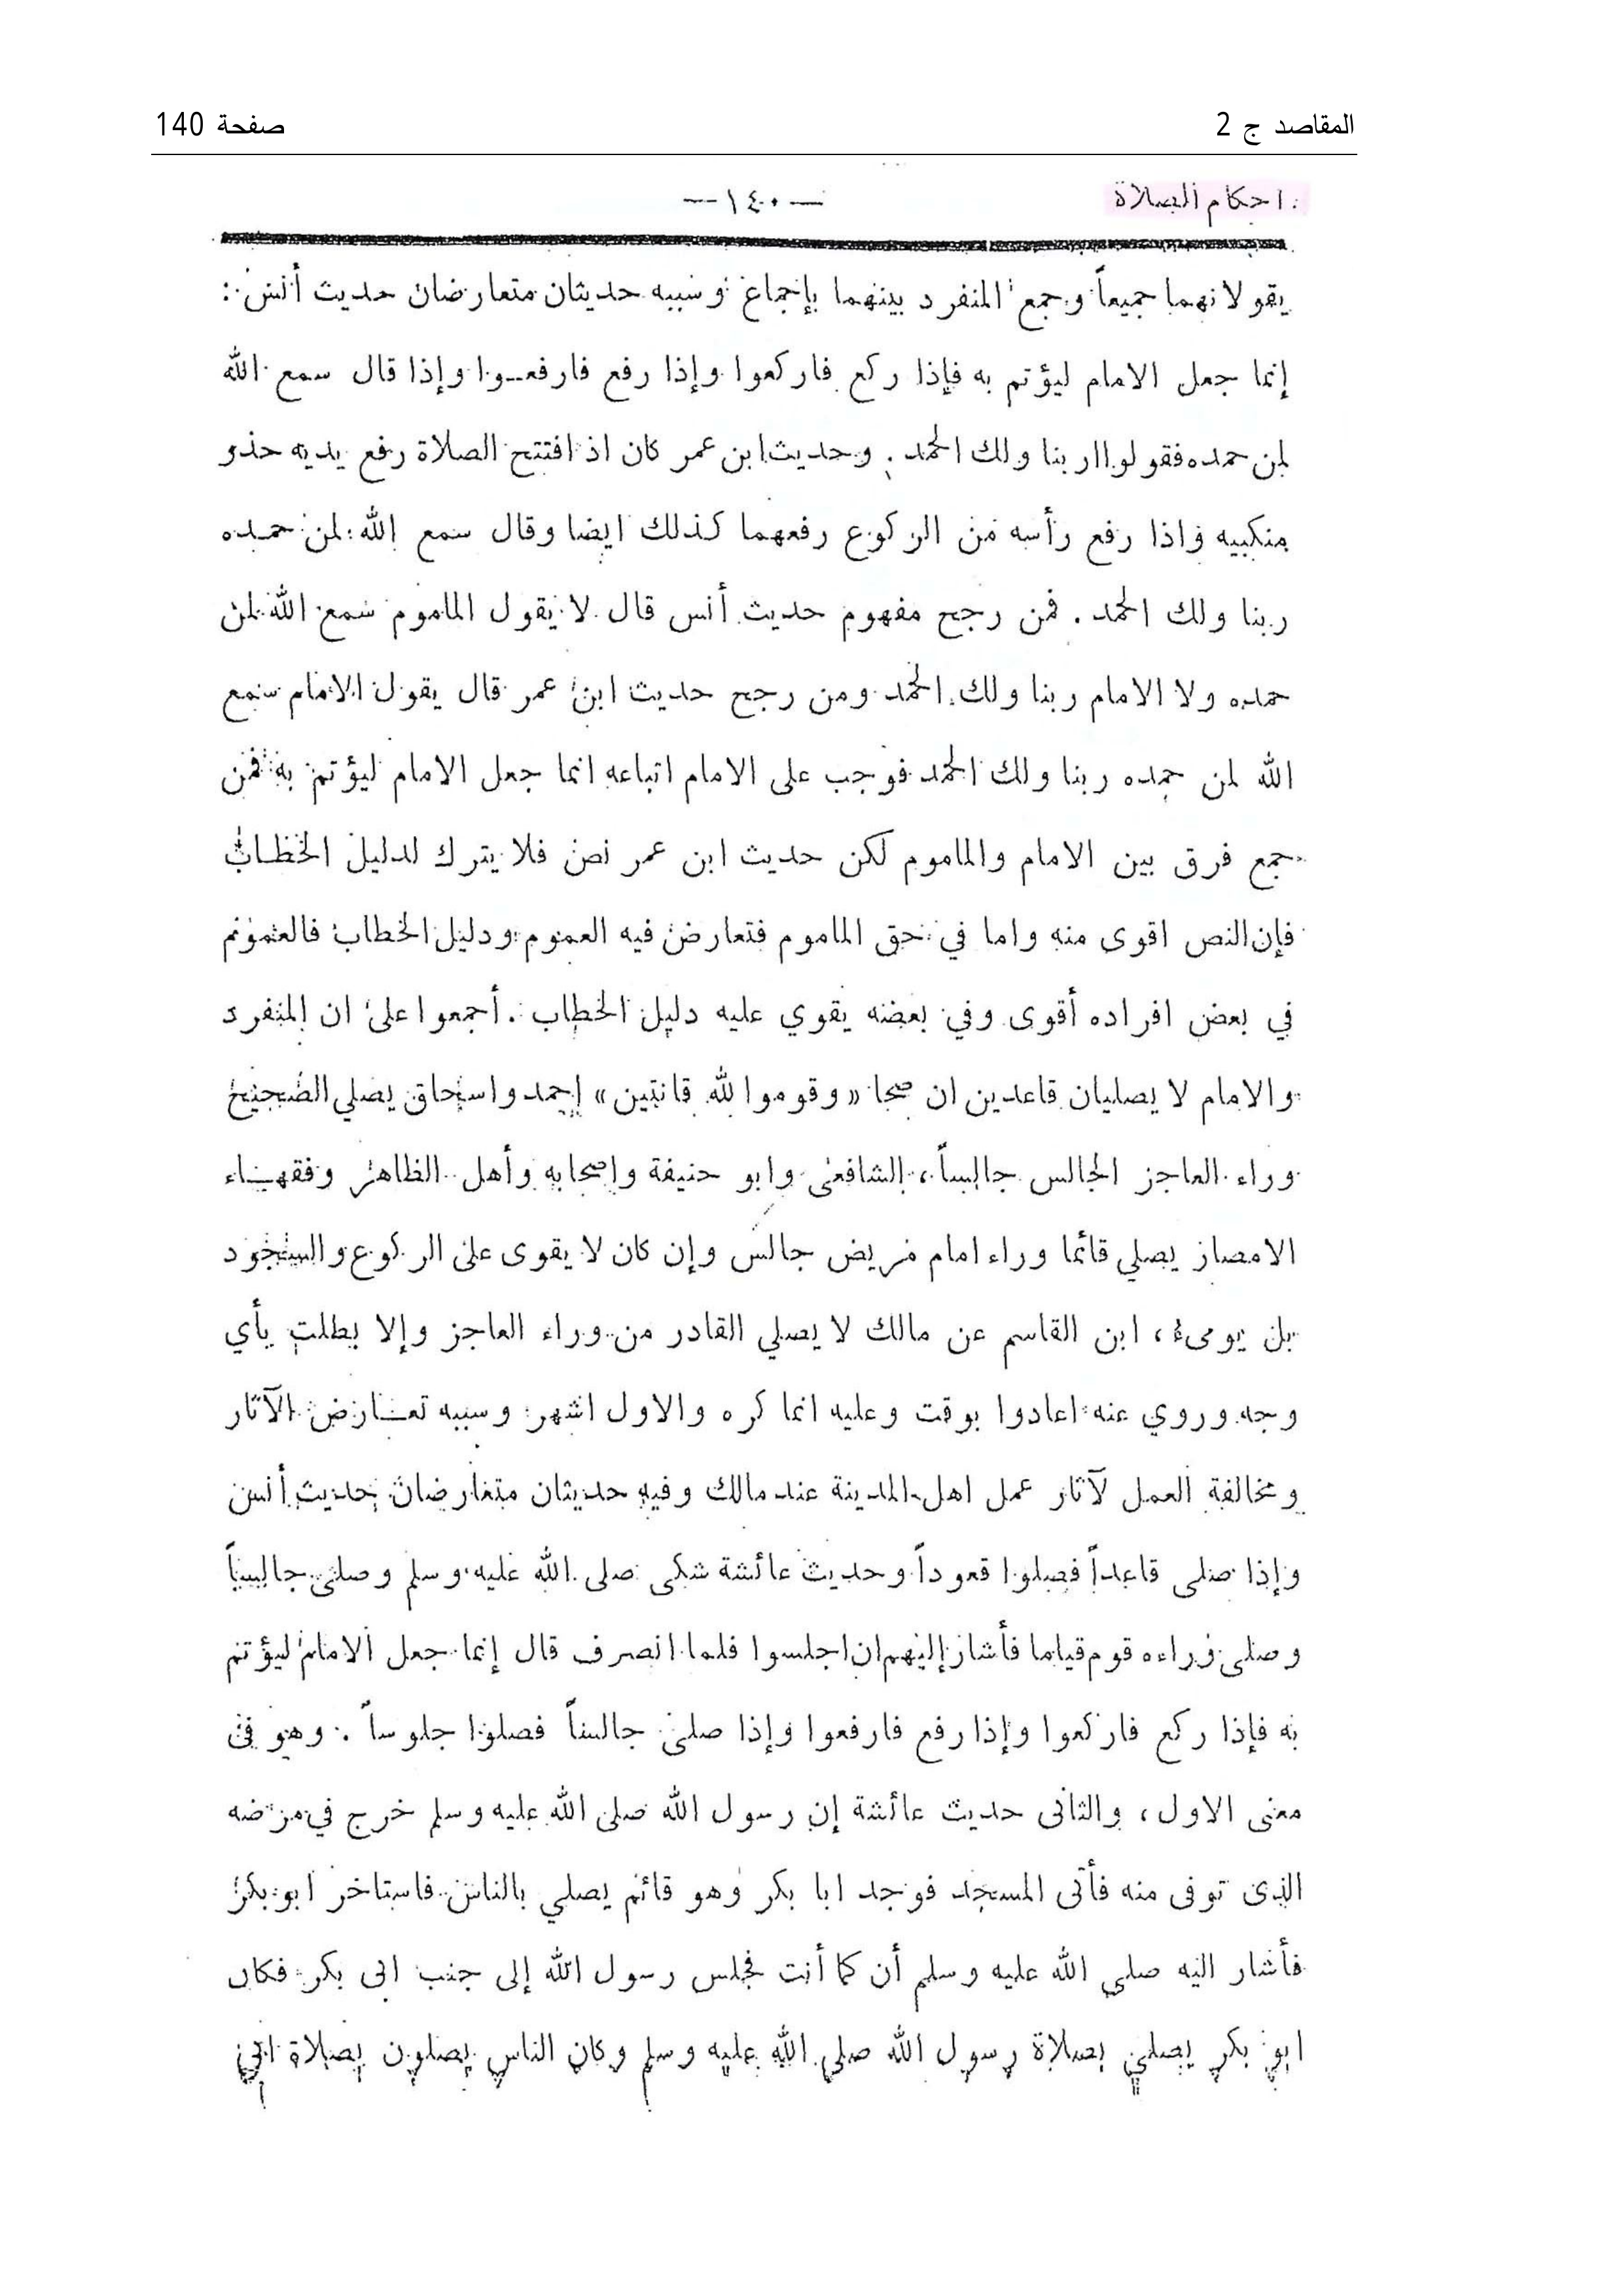 المقاصد ج 2
صفحة 140
احكام الصلاة
— ١٤٠ —
يقولانهما جميعاً وجمع المنفرد بينهما بإجماع وسببه حديثان متعارضان حديث أنس :
إنما جعل الامام ليؤتم به فإذا ركع فاركعوا وإذا رفع فارفعوا وإذا قال سمع الله
لمن حمده فقولوا ربنا ولك الحمد . وحديث ابن عمر كان اذ افتتح الصلاة رفع يديه حذو
منكبيه واذا رفع رأسه من الركوع رفعهما كذلك ايضا وقال سمع الله لمن حمده
ربنا ولك الحمد . فمن رجح مفهوم حديث أنس قال لا يقول الماموم سمع الله لمن
حمده ولا الامام ربنا ولك الحمد ومن رجح حديث ابن عمر قال يقول الامام سمع
الله لمن حمده ربنا ولك الحمد فوجب على الامام اتباعه انما جعل الامام ليؤتم به فمن
جمع فرق بين الامام والماموم لكن حديث ابن عمر نص فلا يترك لدليل الخطاب
فإن النص اقوى منه واما في حق الماموم فتعارض فيه العموم ودليل الخطاب فالعموم
في بعض افراده أقوى وفي بعضه يقوي عليه دليل الخطاب . أجمعوا على ان المنفرد
والامام لا يصليان قاعدين ان صحا « وقوموا لله قانتين » احمد واسحاق يصلي الصحيح
وراء العاجز الجالس جالساً ، الشافعى وابو حنيفة واصحابه وأهل الظاهر وفقهاء
الامصار يصلي قائما وراء امام مريض جالس وإن كان لا يقوى على الركوع والسجود
بل يومىء ، ابن القاسم عن مالك لا يصلي القادر من وراء العاجز وإلا بطلت بأي
وجه وروي عنه اعادوا بوقت وعليه انما كره والاول اشهر وسببه تعارض الآثار
ومخالفة العمل لآثار عمل اهل المدينة عند مالك وفيه حديثان متعارضان حديث أنس
وإذا صلى قاعداً فصلوا قعوداً وحديث عائشة شكى صلى الله عليه وسلم وصلى جالساً
وصلى وراءه قوم قياما فأشار إليهم ان اجلسوا فلما انصرف قال إنما جعل الامام ليؤتم
به فإذا ركع فاركعوا وإذا رفع فارفعوا وإذا صلى جالساً فصلوا جلوساً . وهو في
معنى الاول ، والثانى حديث عائشة إن رسول الله صلى الله عليه وسلم خرج في مرضه
الذى توفى منه فأتى المسجد فوجد ابا بكر وهو قائم يصلي بالناس فاستاخر ابو بكر
فأشار اليه صلى الله عليه وسلم أن كما أنت فجلس رسول الله إلى جنب ابى بكر فكان
ابو بكر يصلي بصلاة رسول الله صلى الله عليه وسلم وكان الناس يصلون بصلاة ابي